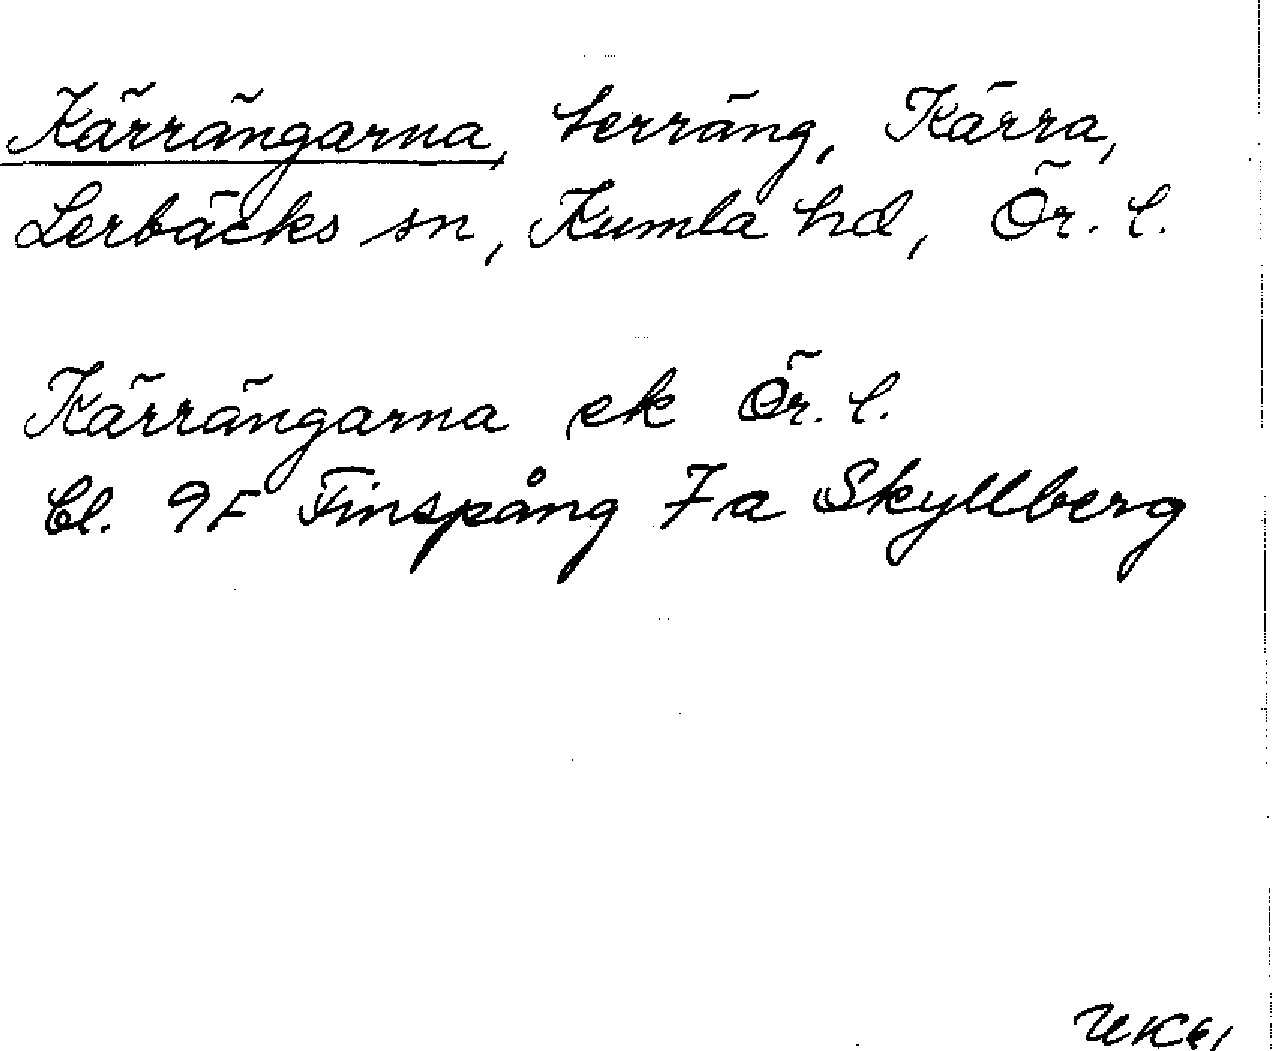 Kärrängarna, terräng, Kärra,
Lerbäcks sn, Kumla hd, Ör. l.
Kärrängarna ek Ör. l.
Bl. 9F Finspång 7a Skyllberg